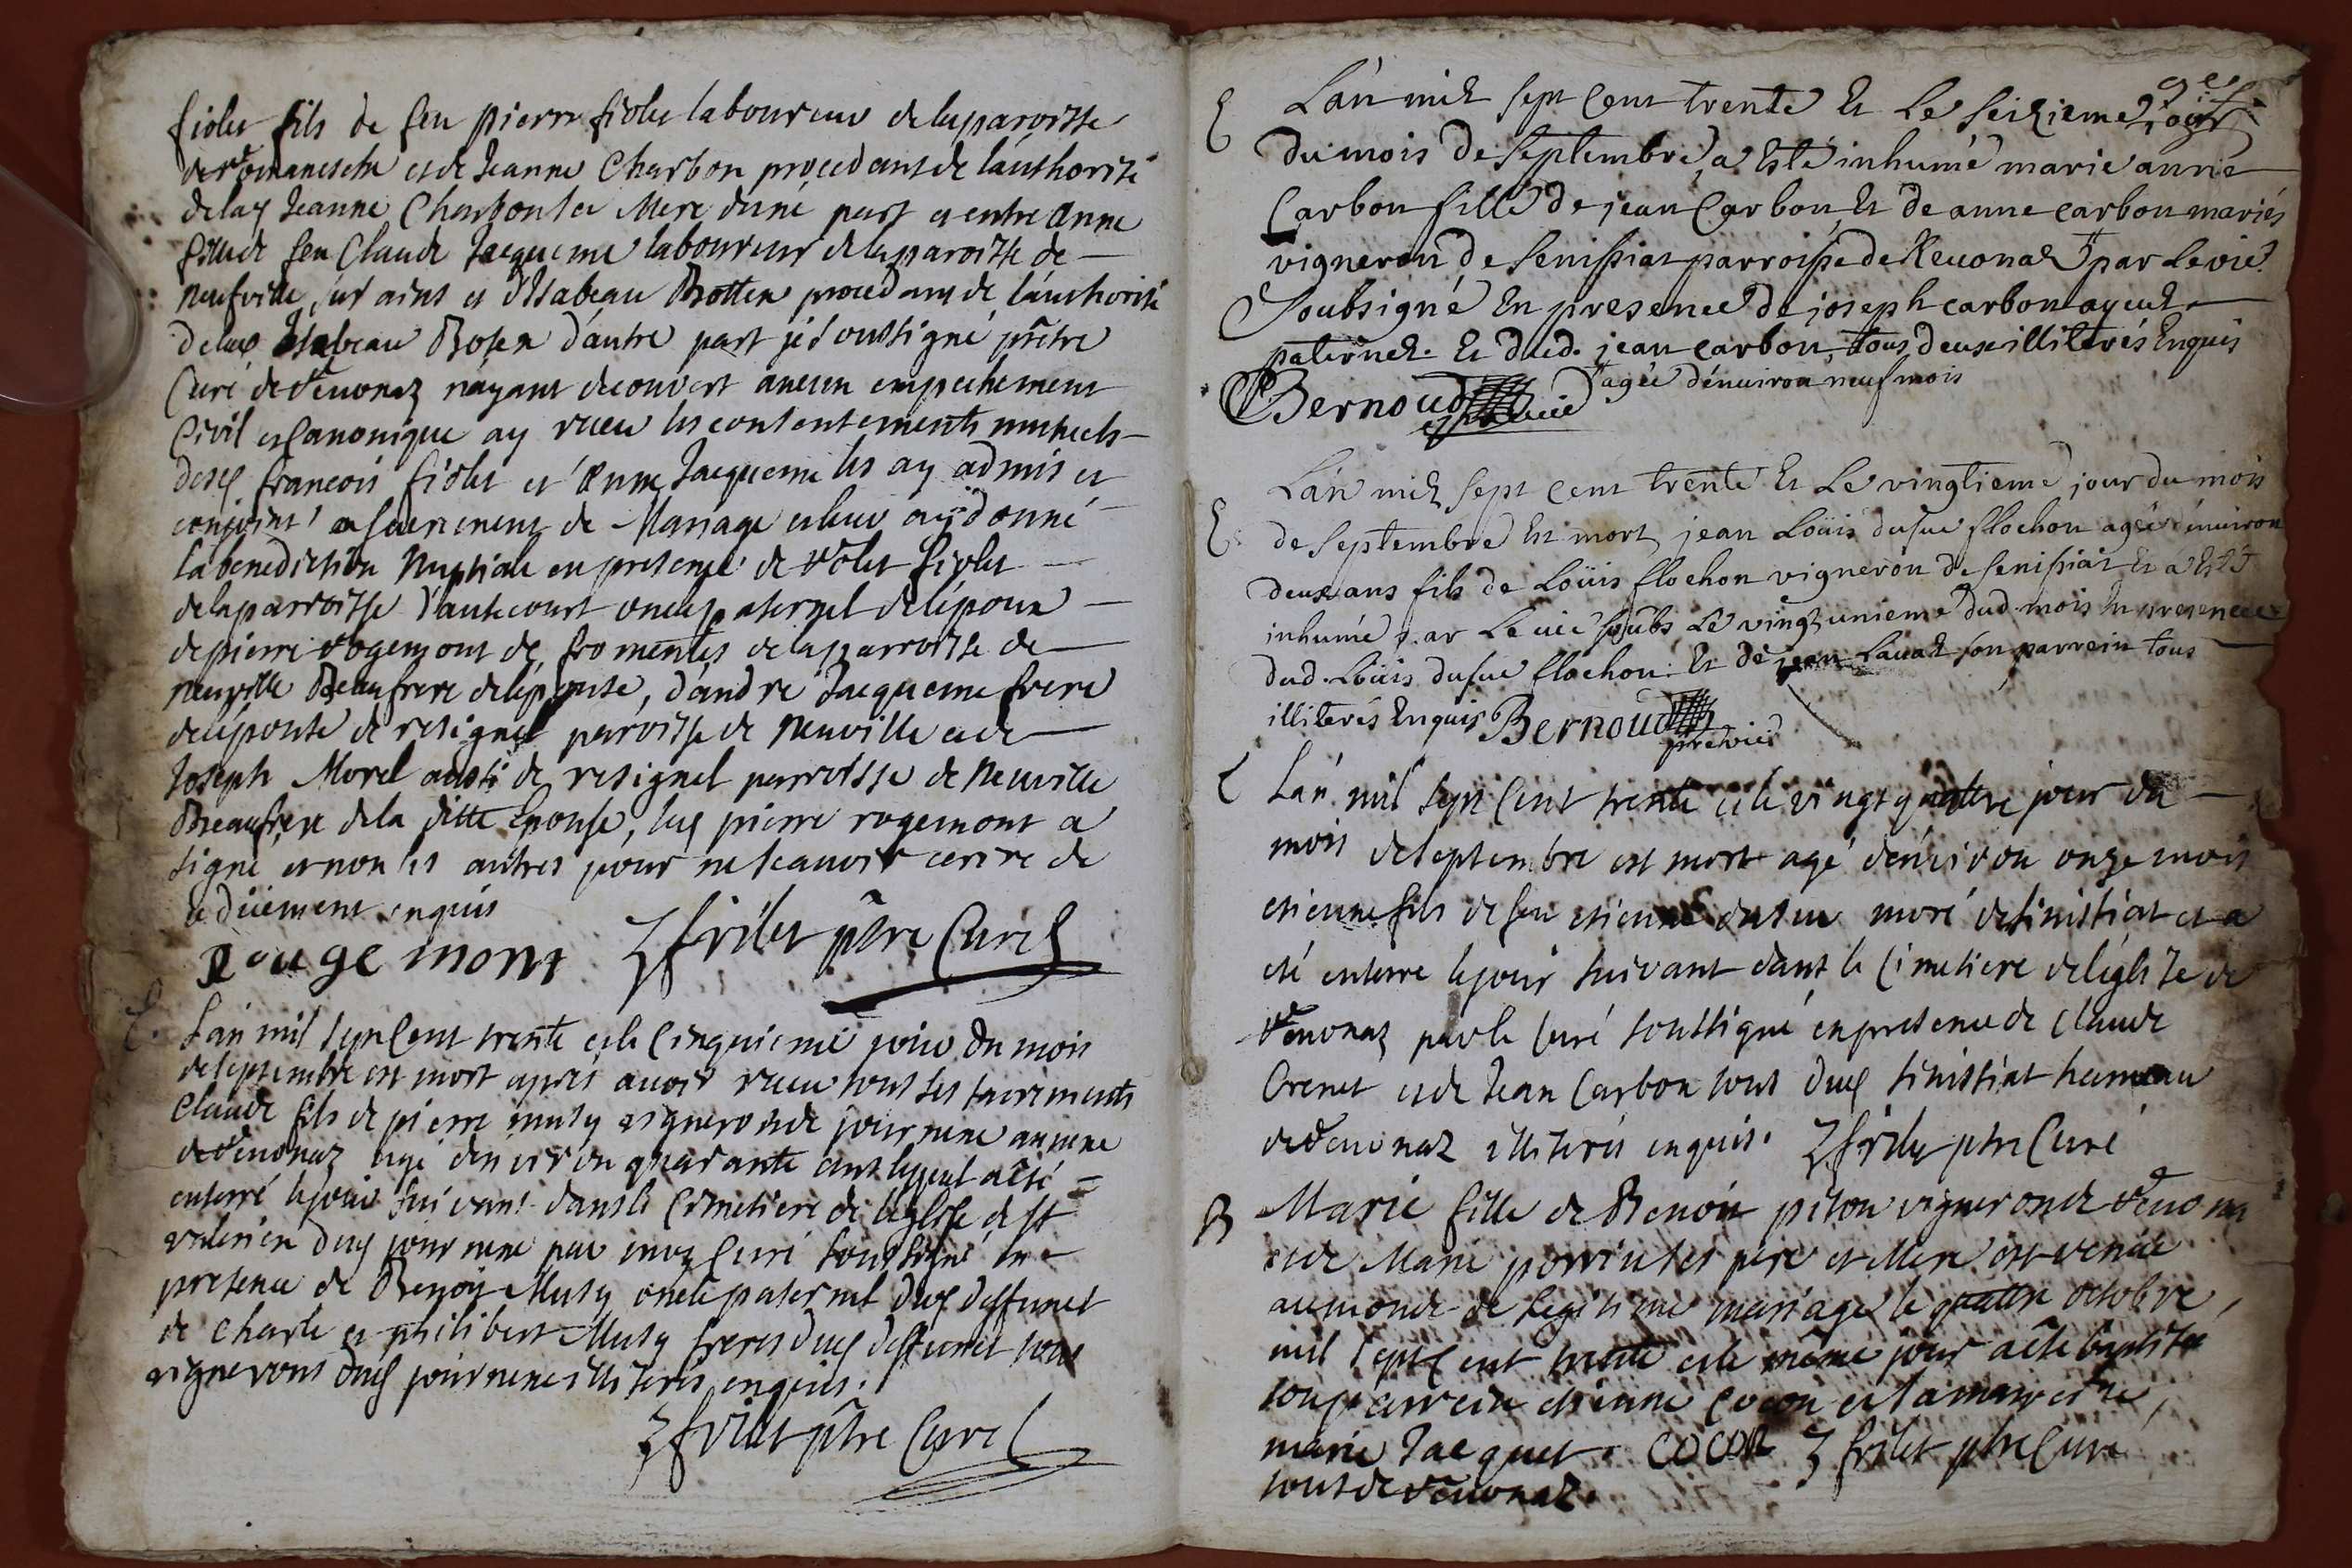 fiolet fils de feu pierre fiolet laboureur de la paroisse
de romanesche et de Jeanne Charbon procedant de l'authorité
de lad Jeanne Charbon sa Mere d'une part et entre Anne
fille de feu Claude Jacqueme laboureur de la paroisse de
neufville sur ains et d'Isabeau Botten procedant de l'authorité
de lad Isabeau d'autre part je soussigné prêtre
Curé de revonaz n'ayant decouvert aucun empechement
Civil et Canonique ay receu les consentements mutuels
desd francois fiolet et Anne Jacqueme les ay admis et
conjoint au sacrement de Mariage et leur ay donné
la benediction Nuptiale en presence de fiolet
de la parroisse oncle paternel de l'époux
de pierre rogemont de fromentes de la parroisse de
neuville Beaufrere de l'épouse, d'andre Jacqueme frere
de l'épouse de resignel parroisse de Neuville et de
Joseph Morel aussi de resignel parroisse de Neuville
Beaufrere de la ditte Epouse, led pierre rogemont a
signé et non les autres pour ne scauoir ecrire de
ce düement enquis
rougemont frilet ptre Curé
E. L'an mil sept Cent trente et le Cinquieme jour du mois
de septembre est mort apres auoir receu tous les sacrements
Claude fils de pierre musy vigneron de journene annexe
de reuonaz agé d'enuiron quarante ans lequel a eté
enterré le jour suivant dans le Cimetiere de l'eglise de st
valerien dud journene par moy Curé soussigné en
presence de Benoit Musy oncle paternel dud deffunct
de Charle et philibert Musy freres dud deffunct tous
vignerons dud journene illiterés enquis.
frilet ptre Curé
E L'an mil sept cent trente et Le seizieme jour
du mois de septembre a esté inhumé marie anne
Carbon fille de jean Carbon et de anne carbon mariés
vigneron de senissiat parroisse de Reuonaz par Le vic.
Soubsigné En presence de joseph carbon ayeul
paternel. Et dud. jean carbon, tous deux illiterés Enquis
Bernoud agée d'enuiron neuf mois
L'an mil sept cent trente Et Le vingtieme jour du mois
E. de septembre Est mort jean Loüis dufue flochon agé d'enuiron
deux ans fils de Loüis flochon vigneron de senissiat Et a Esté
inhumé par Le vic soubs. Le vingt unieme dud. mois En presence
dud. Loüis dufue flochon Et de jean Lauat son parrein tous
illiterés Enquis Bernoud
ptre vic
E L'an mil sept Cent trente et le vingt quattre jour du
mois de septembre est mort agé d'enuiron onze mois
etienne fils de feu etienne moré de sinissiat et a
eté enterre le jour suivant dans le Cimetiere de l'eglise de
reuonaz par le Curé soussigné en presence de Claude
Crenet et de Jean Carbon tous dud sinissiat hameau
de reuonaz illiterés enquis. frilet ptre Curé
B Marie fille de Benoit piton vigneron de reuonaz
et de Marie ses pere et Mere est venüe
au monde de legitime mariage le quattre octobre
mil sept Cent trente et le même jour a eté baptisée
son parrein etienne Cocon et la marreine
marie Jacquet. COCON frilet ptre Curé
tous de reuonaz.